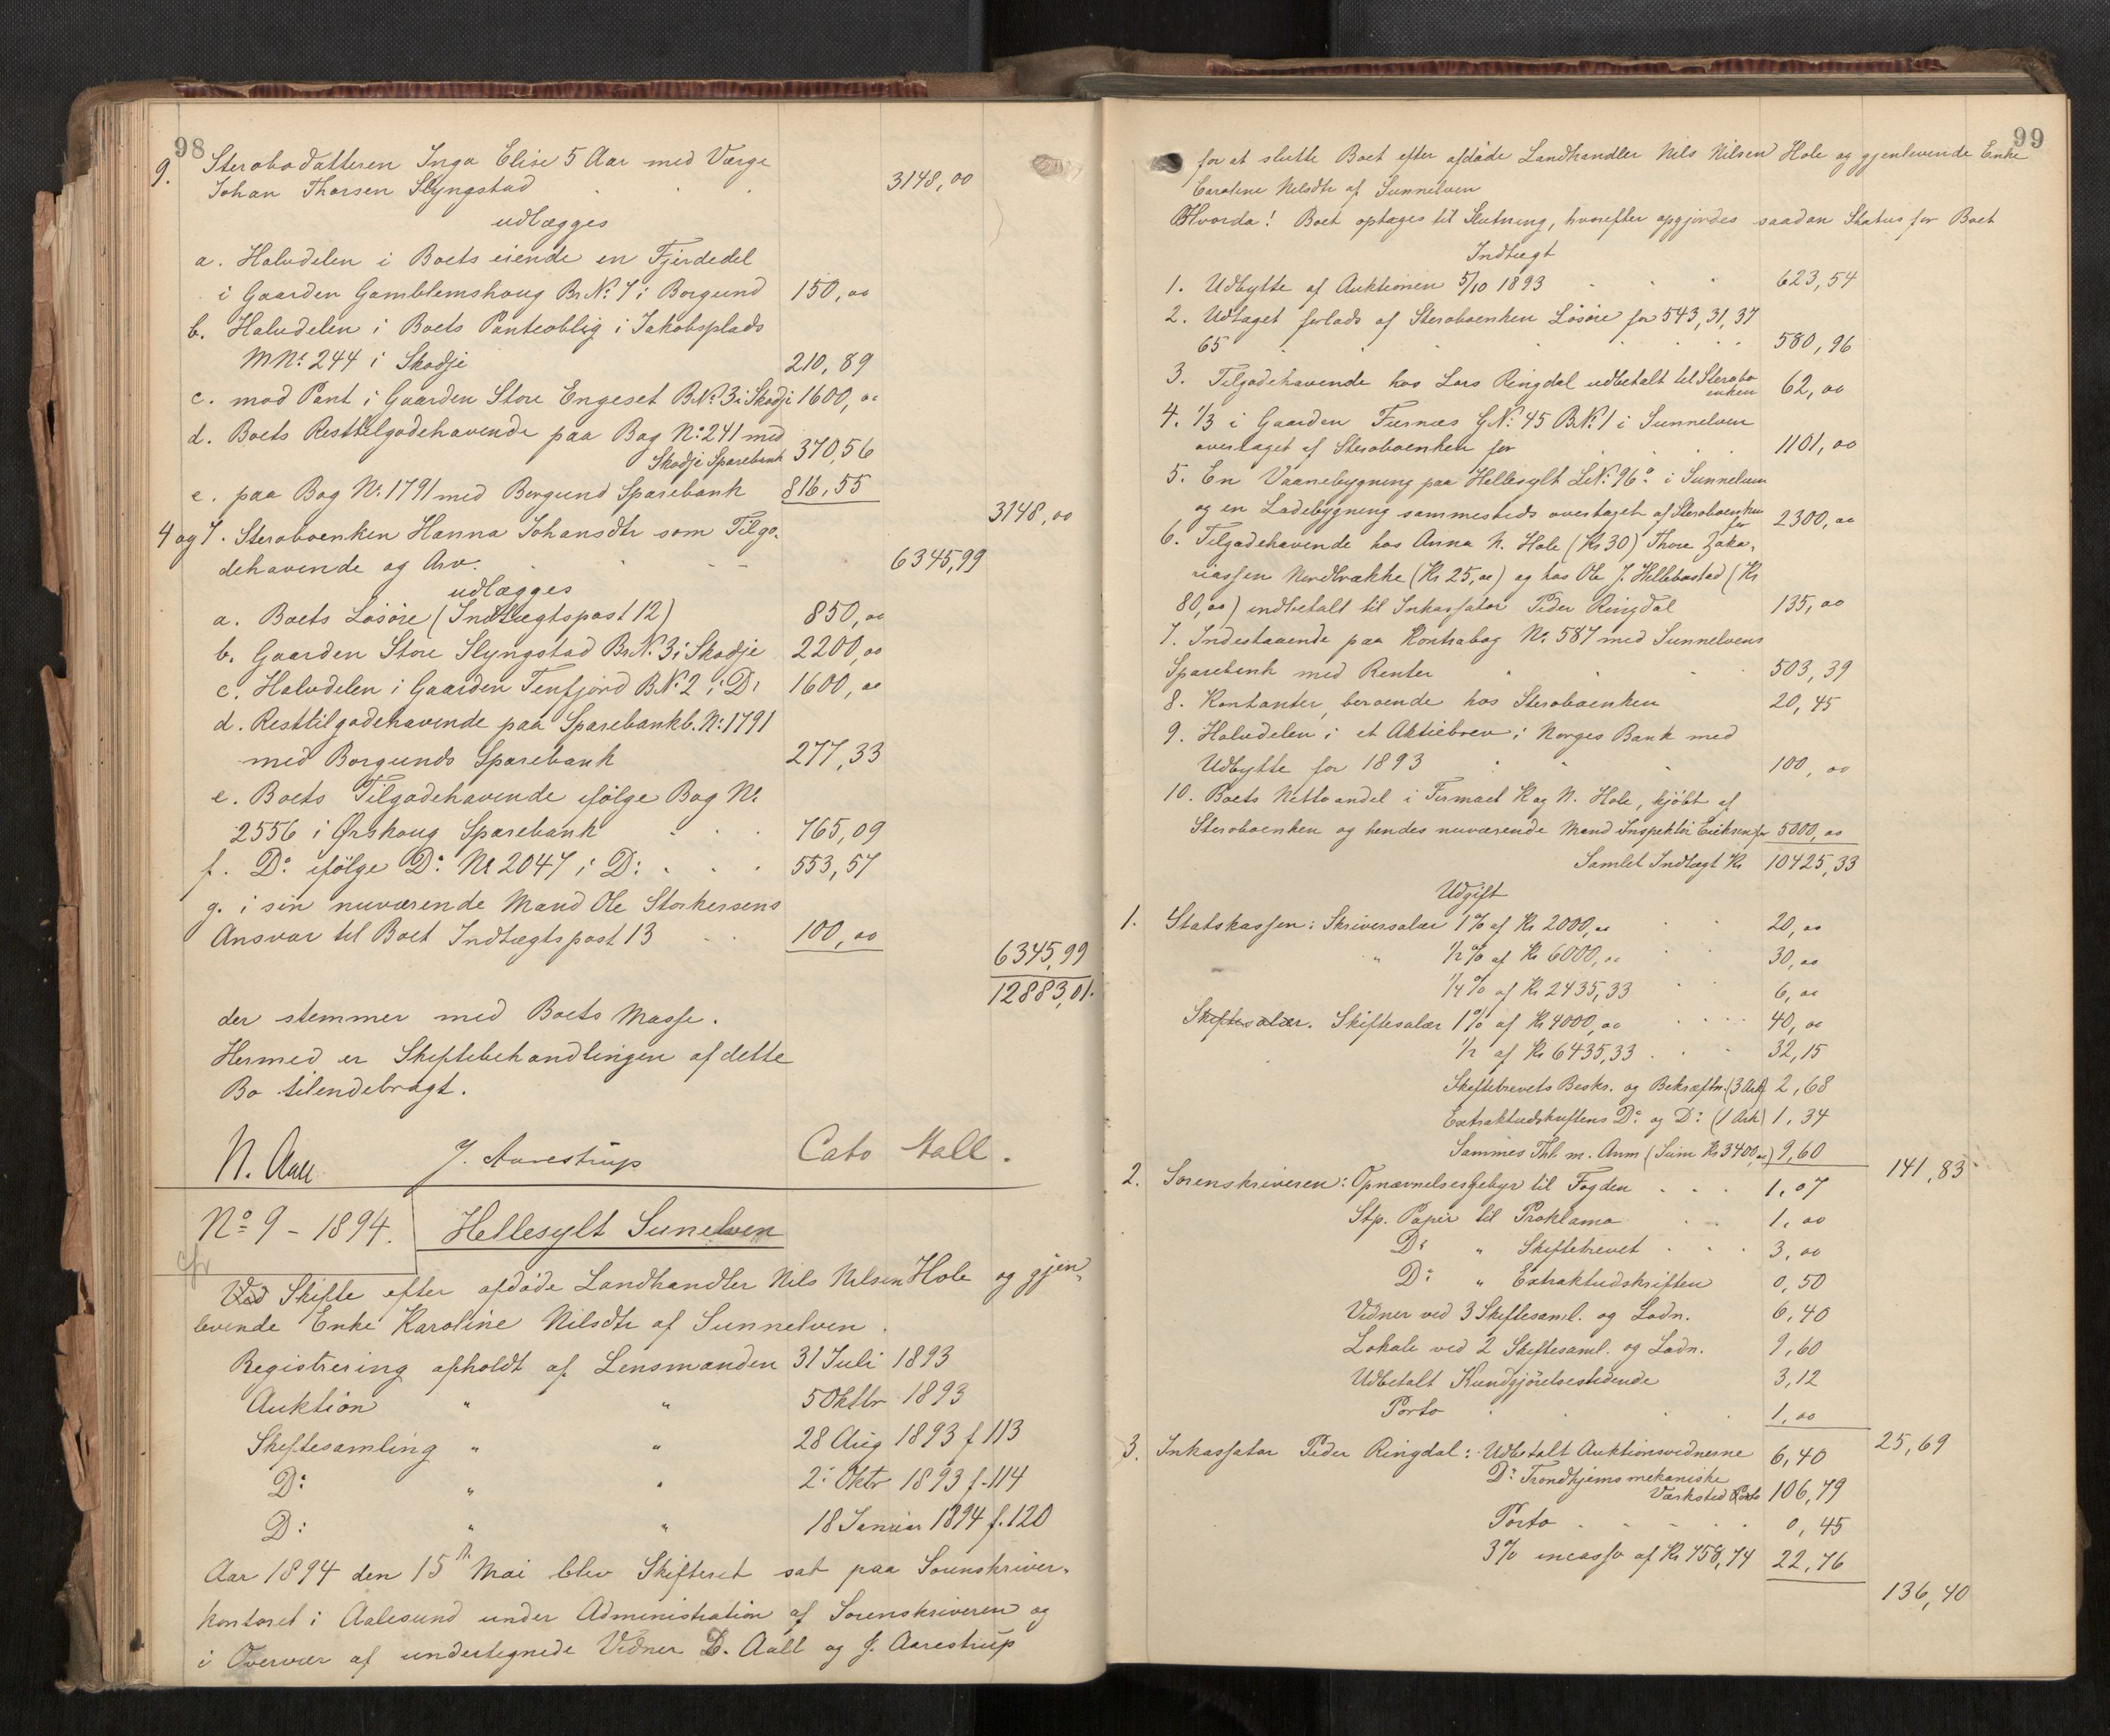 98
9. Sterbodatteren Inga Elise 5 Aar med Værge
Johan Thorsen Slyngstad . . . 3148,00
udlægges
a. Halvdelen i Boets eiende en Fjerdedel
i Gaarden Gamblemshoug Br.No. 7 i Borgund 150,00
b. Halvdelen i Boets Panteoblig i Jakobsplads
MNo. 244 i Skodje 210,89
c. mod Pant i Gaarden Store Engeset B.No. 3 i Skodje 1600,00
d. Boets Resttilgodehavende paa Bog No. 241 med
Skodje Sparebank 370,56
e. paa Bog No. 1791 med Borgund Sparebank 816,55
3148,00
4 og 7. Sterboenken Hanna Johansdtr som Tilgo-
dehavende og Arv. . . 6345,99
udlægges
a. Boets Løsøre (Indtægtspost 12) 850,00
b. Gaarden Store Slyngstad Br.No. 3 i Skodje 2200,00
c. Halvdelen i Gaarden Tenfjord B.No. 2 i Do 1600,00
d. Resttilgodehavende paa Sparebankb. No. 1791
med Borgunds Sparebank 277,33
e. Boets Tilgodehavende ifølge Bog No.
2556 i Ørskoug Sparebank . . 765,09
f. Do ifølge Do No 2047 i Do . . . 553,57
g. i sin nuværende Mand Ole Storkersens
Ansvar til Boet Indtægtspost 13 . . 100,00
6345,99
12883,01.
der stemmer med Boets Masse.
Hermed er Skiftebehandlingen af dette
Bo tilendebragt.
N. Aall J. Aarestrup Cato Aall.
No 9 - 1894. Hellesylt Sunelven
cfr
Ved Skifte efter afdøde Landhandler Nils Nilsen Hole og gjen-
levende Enke Karoline Nilsdtr af Sunnelven.
Registrering afholdt af Lensmanden 31 Juli 1893
Auktion " " 5 Oktbr 1893
Skiftesamling " " 28 Aug 1893 f 113
Do " " 2. Oktr 1893 f. 114
Do " " 18 Januar 1894 f. 120
Aar 1894 den 15de Mai blev Skifteret sat paa Sorenskriver-
kontoret i Aalesund under Administration af Sorenskriveren og
i Overvær af undertegnede Vidner D. Aall og J. Aarestrup
99
for at slutte Boet efter afdøde Landhandler Nils Nilsen Hole og gjenlevende Enke
Caroline Nilsdtr af Sunnelven
Hvorda! Boet optages til Slutning, hvorefter opgjordes saadan Status for Boet
Indtægt
1. Udbytte af Auktionen 5/10 1893 . . . 623,54
2. Udtaget forlods af Sterboenken Løsøre for 543,31, 37
65 . . . . . 580,96
3. Tilgodehavende hos Lars Ringdal udbetalt til Sterbo
enken 62,00
4. 1/3 i Gaarden Furnæs G.No. 45 B.No. 1 i Sunnelven
overtaget af Sterboenken for . . . 1101,00
5. En Vaanebygning paa Hellesylt L.No. 96a i Sunnelven
og en Ladebygning sammesteds overtaget af Sterboenken
for 2300,00
6. Tilgodehavende hos Anna N. Hole (Kr 30) Thore Zaka-
riassen Nordbrække (Kr 25,00) og hos Ole J. Hellebostad (Kr
80,00) indbetalt til Inkassator Peder Ringdal 135,00
7. Indestaaende paa Kontrabog No. 587 med Sunnelvens
Sparebank med Renter . . . 503,39
8. Kontanter, beroende hos Sterboenken 20,45
9. Halvdelen i et Aktiebrev i Norges Bank med
Udbytte for 1893 . . . 100,00
10. Boets Nettoandel i Firmaet K og N. Hole, kjøbt af
Sterboenken og hendes nuværende Mand Inspektør Eriksen for 5000,00
Samlet Indtægt Kr 10425,33
Udgift
1. Statskassen: Skriversalær 1% af Kr 2000,00 . . 20,00
" 1/2% af Kr 6000,00 . . 30,00
1/4% af Kr 2435,33 . . 6,00
Skiftesalær. Skiftesalær 1% af Kr 4000,00 . . . . 40,00
1/2 af Kr 6435,33 . . . 32,15
Skiftebrevets Beskr. og Bekræftn. (3 Ark) 2,68
Extraktudskriftens Do og Do (1 Ark) 1,34
Sammes Thl. m. Anm (Sum Kr 3400,00) 9,60
141,83
2. Sorenskriveren: Opnævnelsesgebyr til Fogden . . . 1,07
Stp. Papir til Proklama . . . 1,00
Do " Skiftebrevet . . . 3,00
Do " Extraktudskriften 0,50
Vidner ved 3 Skiftesaml. og Lodn. 6,40
Lokale ved 2 Skiftesaml. og Lodn. 9,60
Udbetalt Kundgjørelsestidende 3,12
Porto . . . 1,00
25,69
3. Inkassator Peder Ringdal: Udbetalt Auktionsvidnerne 6,40
Do Trondhjems mekaniske
Værksted 106,79
Porto . . . . . 0,45
3% incasso af Kr 758,74 22,76
136,40